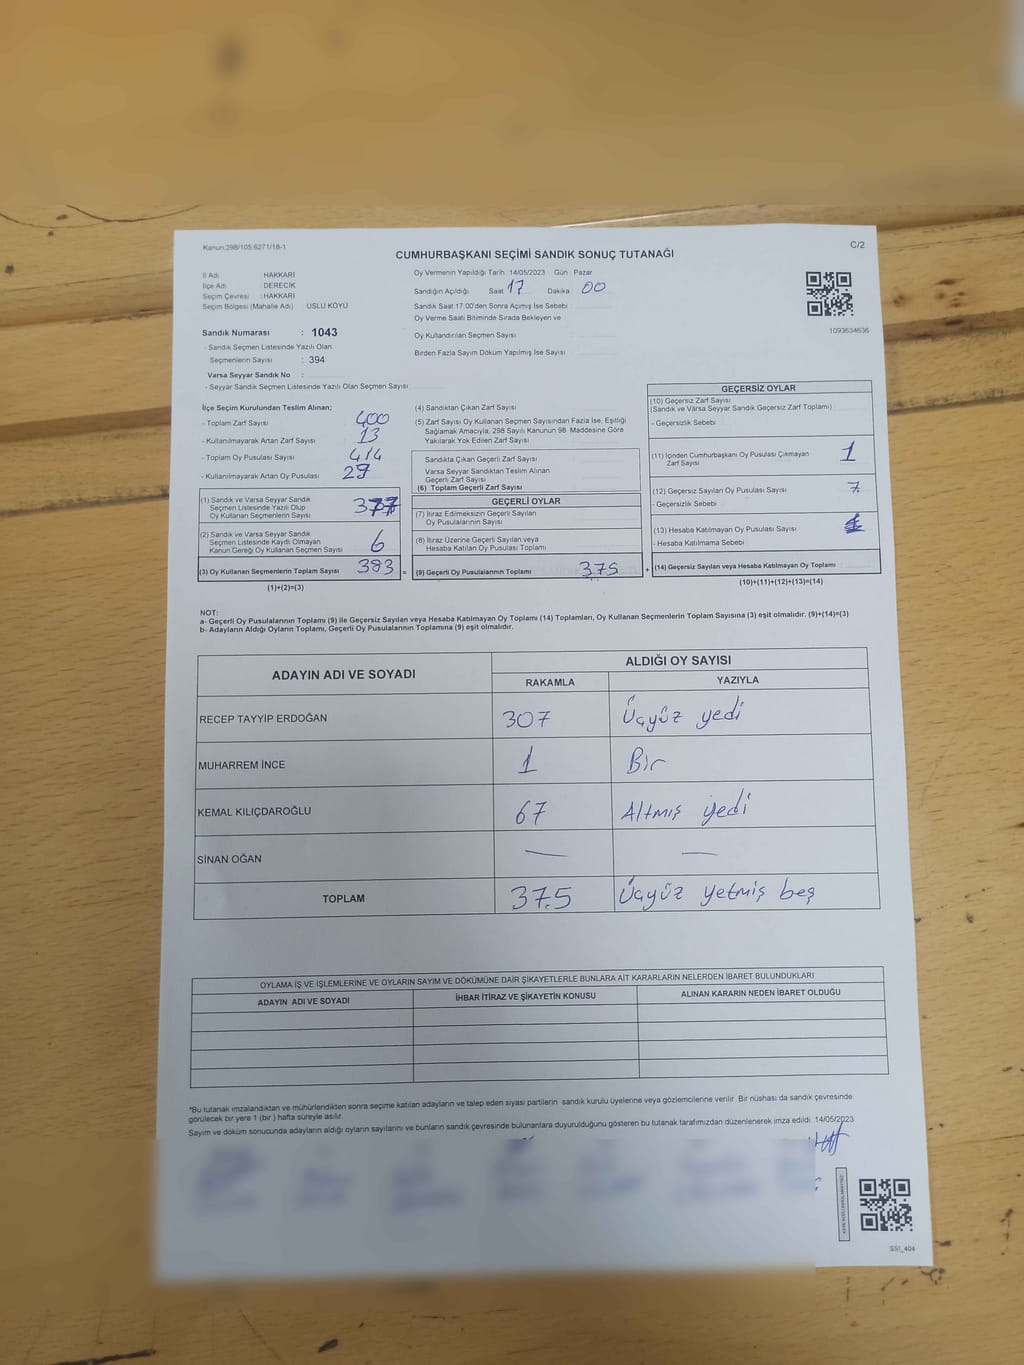 Kanun:298/105.6271/18-1
C/2
CUMHURBAŞKANI SEÇİMİ SANDIK SONUÇ TUTANAĞI
İl Adı : HAKKARİ
İlçe Adı : DERECİK
Seçim Çevresi : HAKKARİ
Seçim Bölgesi (Mahalle Adı) USLU KÖYÜ
Sandık Numarası : 1043
- Sandık Seçmen Listesinde Yazılı Olan
Seçmenlerin Sayısı : 394
Varsa Seyyar Sandık No :
- Seyyar Sandık Seçmen Listesinde Yazılı Olan Seçmen Sayısı
Oy Vermenin Yapıldığı Tarih : 14/05/2023 Gün : Pazar
Sandığın Açıldığı Saat 17 Dakika : 00
Sandık Saat 17:00'den Sonra Açılmış İse Sebebi
Oy Verme Saati Bitiminde Sırada Bekleyen ve
Oy Kullandırılan Seçmen Sayısı
Birden Fazla Sayım Döküm Yapılmış İse Sayısı
1093634636
İlçe Seçim Kurulundan Teslim Alınan;
- Toplam Zarf Sayısı 400
- Kullanılmayarak Artan Zarf Sayısı 13
- Toplam Oy Pusulası Sayısı 414
- Kullanılmayarak Artan Oy Pusulası 29
(1) Sandık ve Varsa Seyyar Sandık
Seçmen Listesinde Yazılı Olup
Oy Kullanan Seçmenlerin Sayısı 377
(2) Sandık ve Varsa Seyyar Sandık
Seçmen Listesinde Kayıtlı Olmayan
Kanun Gereği Oy Kullanan Seçmen Sayısı 6
(3) Oy Kullanan Seçmenlerin Toplam Sayısı 383 =
(1)+(2)=(3)
(4) Sandıktan Çıkan Zarf Sayısı
(5) Zarf Sayısı Oy Kullanan Seçmen Sayısından Fazla İse, Eşitliği
Sağlamak Amacıyla, 298 Sayılı Kanunun 98. Maddesine Göre
Yakılarak Yok Edilen Zarf Sayısı
Sandıkta Çıkan Geçerli Zarf Sayısı
Varsa Seyyar Sandıktan Teslim Alınan
Geçerli Zarf Sayısı
(6) Toplam Geçerli Zarf Sayısı
GEÇERLİ OYLAR
(7) İtiraz Edilmeksizin Geçerli Sayılan
Oy Pusulalarının Sayısı
(8) İtiraz Üzerine Geçerli Sayılan veya
Hesaba Katılan Oy Pusulası Toplamı
(9) Geçerli Oy Pusulalarının Toplamı 375 +
GEÇERSİZ OYLAR
(10) Geçersiz Zarf Sayısı
(Sandık ve Varsa Seyyar Sandık Geçersiz Zarf Toplamı)
- Geçersizlik Sebebi
(11) İçinden Cumhurbaşkanı Oy Pusulası Çıkmayan
Zarf Sayısı 1
(12) Geçersiz Sayılan Oy Pusulası Sayısı 7
- Geçersizlik Sebebi
(13) Hesaba Katılmayan Oy Pusulası Sayısı
- Hesaba Katılmama Sebebi
(14) Geçersiz Sayılan veya Hesaba Katılmayan Oy Toplamı
(10)+(11)+(12)+(13)=(14)
NOT:
a- Geçerli Oy Pusulalarının Toplamı (9) ile Geçersiz Sayılan veya Hesaba Katılmayan Oy Toplamı (14) Toplamları, Oy Kullanan Seçmenlerin Toplam Sayısına (3) eşit olmalıdır. (9)+(14)=(3)
b- Adayların Aldığı Oyların Toplamı, Geçerli Oy Pusulalarının Toplamına (9) eşit olmalıdır.
ADAYIN ADI VE SOYADI ALDIĞI OY SAYISI
RAKAMLA YAZIYLA
RECEP TAYYİP ERDOĞAN 307 Üçyüz yedi
MUHARREM İNCE 1 Bir
KEMAL KILIÇDAROĞLU 67 Altmış yedi
SİNAN OĞAN — —
TOPLAM 375 Üçyüz yetmiş beş
OYLAMA İŞ VE İŞLEMLERİNE VE OYLARIN SAYIM VE DÖKÜMÜNE DAİR ŞİKAYETLERLE BUNLARA AİT KARARLARIN NELERDEN İBARET BULUNDUKLARI
ADAYIN ADI VE SOYADI İHBAR İTİRAZ VE ŞİKAYETİN KONUSU ALINAN KARARIN NEDEN İBARET OLDUĞU
*Bu tutanak imzalandıktan ve mühürlendikten sonra seçime katılan adayların ve talep eden siyasi partilerin sandık kurulu üyelerine veya gözlemcilerine verilir. Bir nüshası da sandık çevresinde
görülecek bir yere 1 (bir ) hafta süreyle asılır.
Sayım ve döküm sonucunda adayların aldığı oyların sayılarını ve bunların sandık çevresinde bulunanlara duyurulduğunu gösteren bu tutanak tarafımızdan düzenlenerek imza edildi. 14/05/2023
SSI_404